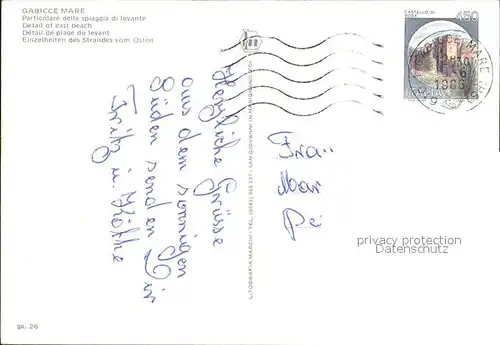 GABICCE MARE
Particolare della spiaggia di levante
Detail of east beach
Détail de plage du levant
Einzelheiten des Strandes vom Osten
CASTELLO DI
450
1986
Herzliche Grüsse
aus dem sonnigen
Süden senden Dir
Fritz u. Käthe
LITOGRAFIA MARCHI - TEL. (0541) 965 157 - SAN GIOVANNI IN MARIGNANO (FO)
Frau
Mar
Pe
privacy protection
VERANSICHTKARTEN.DE
ga. 26